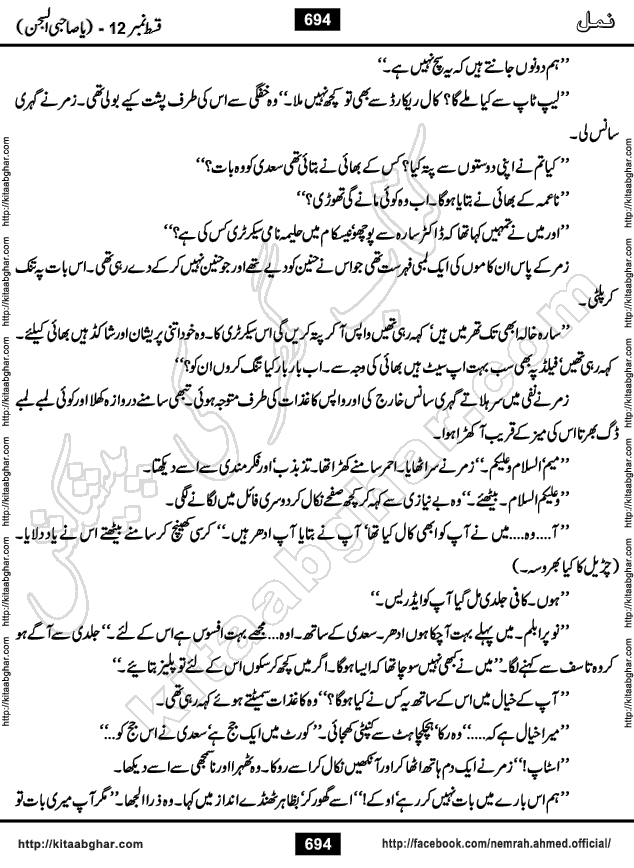 نمل
694
قسط نمبر 12 - (یا صاحبی السجن)
’’ہم دونوں جانتے ہیں کہ یہ سچ نہیں ہے۔‘‘
’’لیپ ٹاپ سے کیا ملے گا؟ کال ریکارڈ سے بھی تو کچھ نہیں ملا۔‘‘ وہ خفگی سے اس کی طرف پشت کیے بولی تھی۔ زمر نے گہری
سانس لی۔
’’کیا تم نے اپنی دوستوں سے پتہ کیا؟ کس کے بھائی نے بتائی تھی سعدی کو وہ بات؟‘‘
’’ناعمہ کے بھائی نے بتایا ہوگا۔ اب وہ کوئی مانے گی تھوڑی؟‘‘
’’اور میں نے تمہیں کہا تھا کہ ڈاکٹر سارہ سے پوچھو، نیسکام میں حلیمہ نامی سیکرٹری کس کی ہے؟‘‘
زمر کے پاس ان کاموں کی ایک لمبی فہرست تھی جو اس نے حنین کو دیے تھے اور جو حنین نہیں کر کے دے رہی تھی۔ اس بات پہ تنک
کر پلٹی۔
’’سارہ خالہ ابھی تک تھر میں ہیں‘ کہہ رہی تھیں واپس آ کر پتہ کریں گی اس سیکرٹری کا۔ وہ خود اتنی پریشان اور شاکڈ ہیں بھائی کیلئے۔
کہہ رہی تھیں‘ فیلڈ پہ بھی سب بہت اپ سیٹ ہیں بھائی کی وجہ سے۔ اب بار بار کیا تنگ کروں ان کو؟‘‘
زمر نے نفی میں سر ہلاتے گہری سانس خارج کی اور واپس کاغذات کی طرف متوجہ ہوئی تبھی سامنے دروازہ کھلا اور کوئی لمبے لمبے
ڈگ بھرتا اس کی میز کے قریب آ کھڑا ہوا۔
’’میم‘ السلام وعلیکم۔‘‘ زمر نے سر اٹھایا۔ احمر سامنے کھڑا تھا۔ تذبذب‘ اور فکر مندی سے اسے دیکھتا۔
’’وعلیکم السلام۔ بیٹھئے۔‘‘ وہ بے نیازی سے کہہ کر کچھ صفحے نکال کر دوسری فائل میں لگانے لگی۔
’’آ....وہ....میں نے آپ کو ابھی کال کیا تھا‘ آپ نے بتایا آپ ادھر ہیں۔‘‘ کرسی کھینچ کر سامنے بیٹھتے اس نے یاد دلایا۔
(چڑیل کا کیا بھروسہ۔)
’’ہوں۔ کافی جلدی مل گیا آپ کو ایڈریس۔‘‘
’’نو پرابلم۔ میں پہلے بہت آچکا ہوں ادھر۔ سعدی کے ساتھ۔ اوہ... مجھے بہت افسوس ہے اس کے لئے۔‘‘ جلدی سے آگے ہو
کر وہ تاسف سے کہنے لگا۔’’ میں نے کبھی نہیں سوچا تھا کہ ایسا ہوگا۔ اگر میں کچھ کرسکوں اس کے لئے تو پلیز بتائیے۔‘‘
’’آپ کے خیال میں اس کے ساتھ یہ کس نے کیا ہوگا؟‘‘ وہ کاغذات سمیٹتے ہوئے کہہ رہی تھی۔
’’میرا خیال ہے کہ.....‘‘ وہ رکا‘ ہچکچاہٹ سے کنپٹی کھجائی۔’’ کورٹ میں ایک جج ہے‘ سعدی نے اس جج کو...‘‘
’’اسٹاپ!‘‘ زمر نے ایک دم ہاتھ اٹھا کر اور آنکھیں نکال کر اسے روکا۔ وہ ٹھہرا اور ناسمجھی سے اسے دیکھا۔
’’ہم اس بارے میں بات نہیں کر رہے‘ اوکے!‘‘ اسے گھور کر‘ بظاہر ٹھنڈے انداز میں کہا۔ وہ ذرا الجھا۔’’ مگر آپ میری بات تو
http://kitaabghar.com
694
http://facebook.com/nemrah.ahmed.official/
http://kitaabghar.com http://kitaabghar.com http://kitaabghar.com http://kitaabghar.com http://kitaabghar.com http://kitaabghar.com
http://kitaabghar.com http://kitaabghar.com http://kitaabghar.com http://kitaabghar.com http://kitaabghar.com http://kitaabghar.com
کتاب گھر کی پیشکش
kitaabghar.com